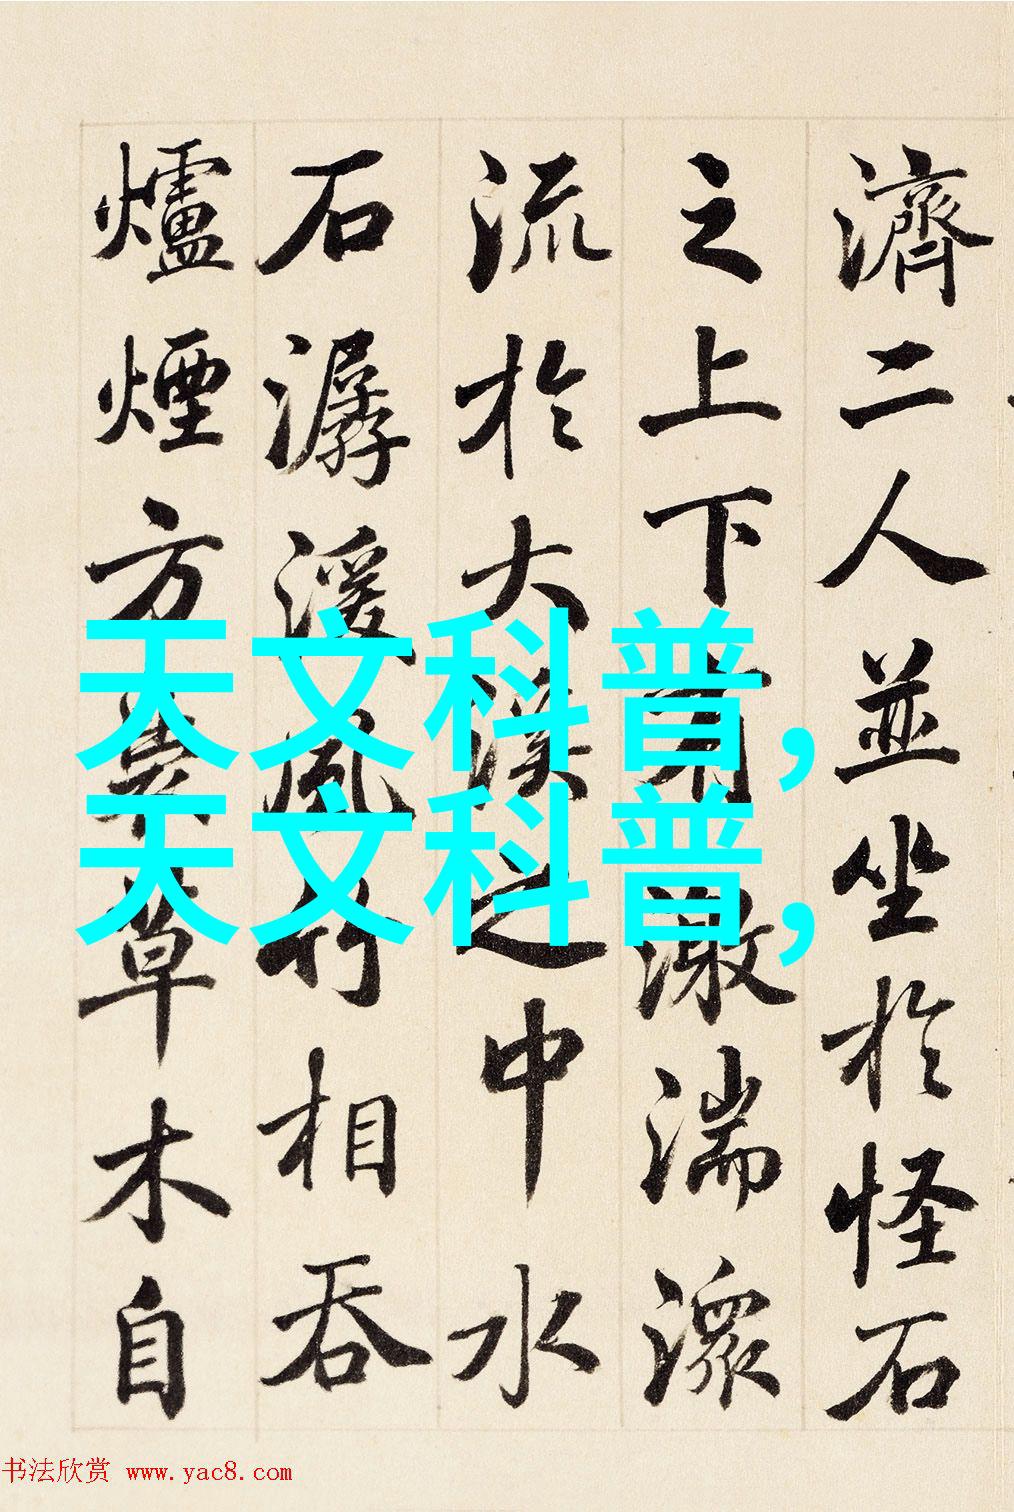 濟二人並坐於怪石
之上下有激湍潨
流於大溪之中水
石潺湲風竹相吞
爐煙方裊草木自
天文科普,
天文科普,
书法欣赏 www.yac8.com